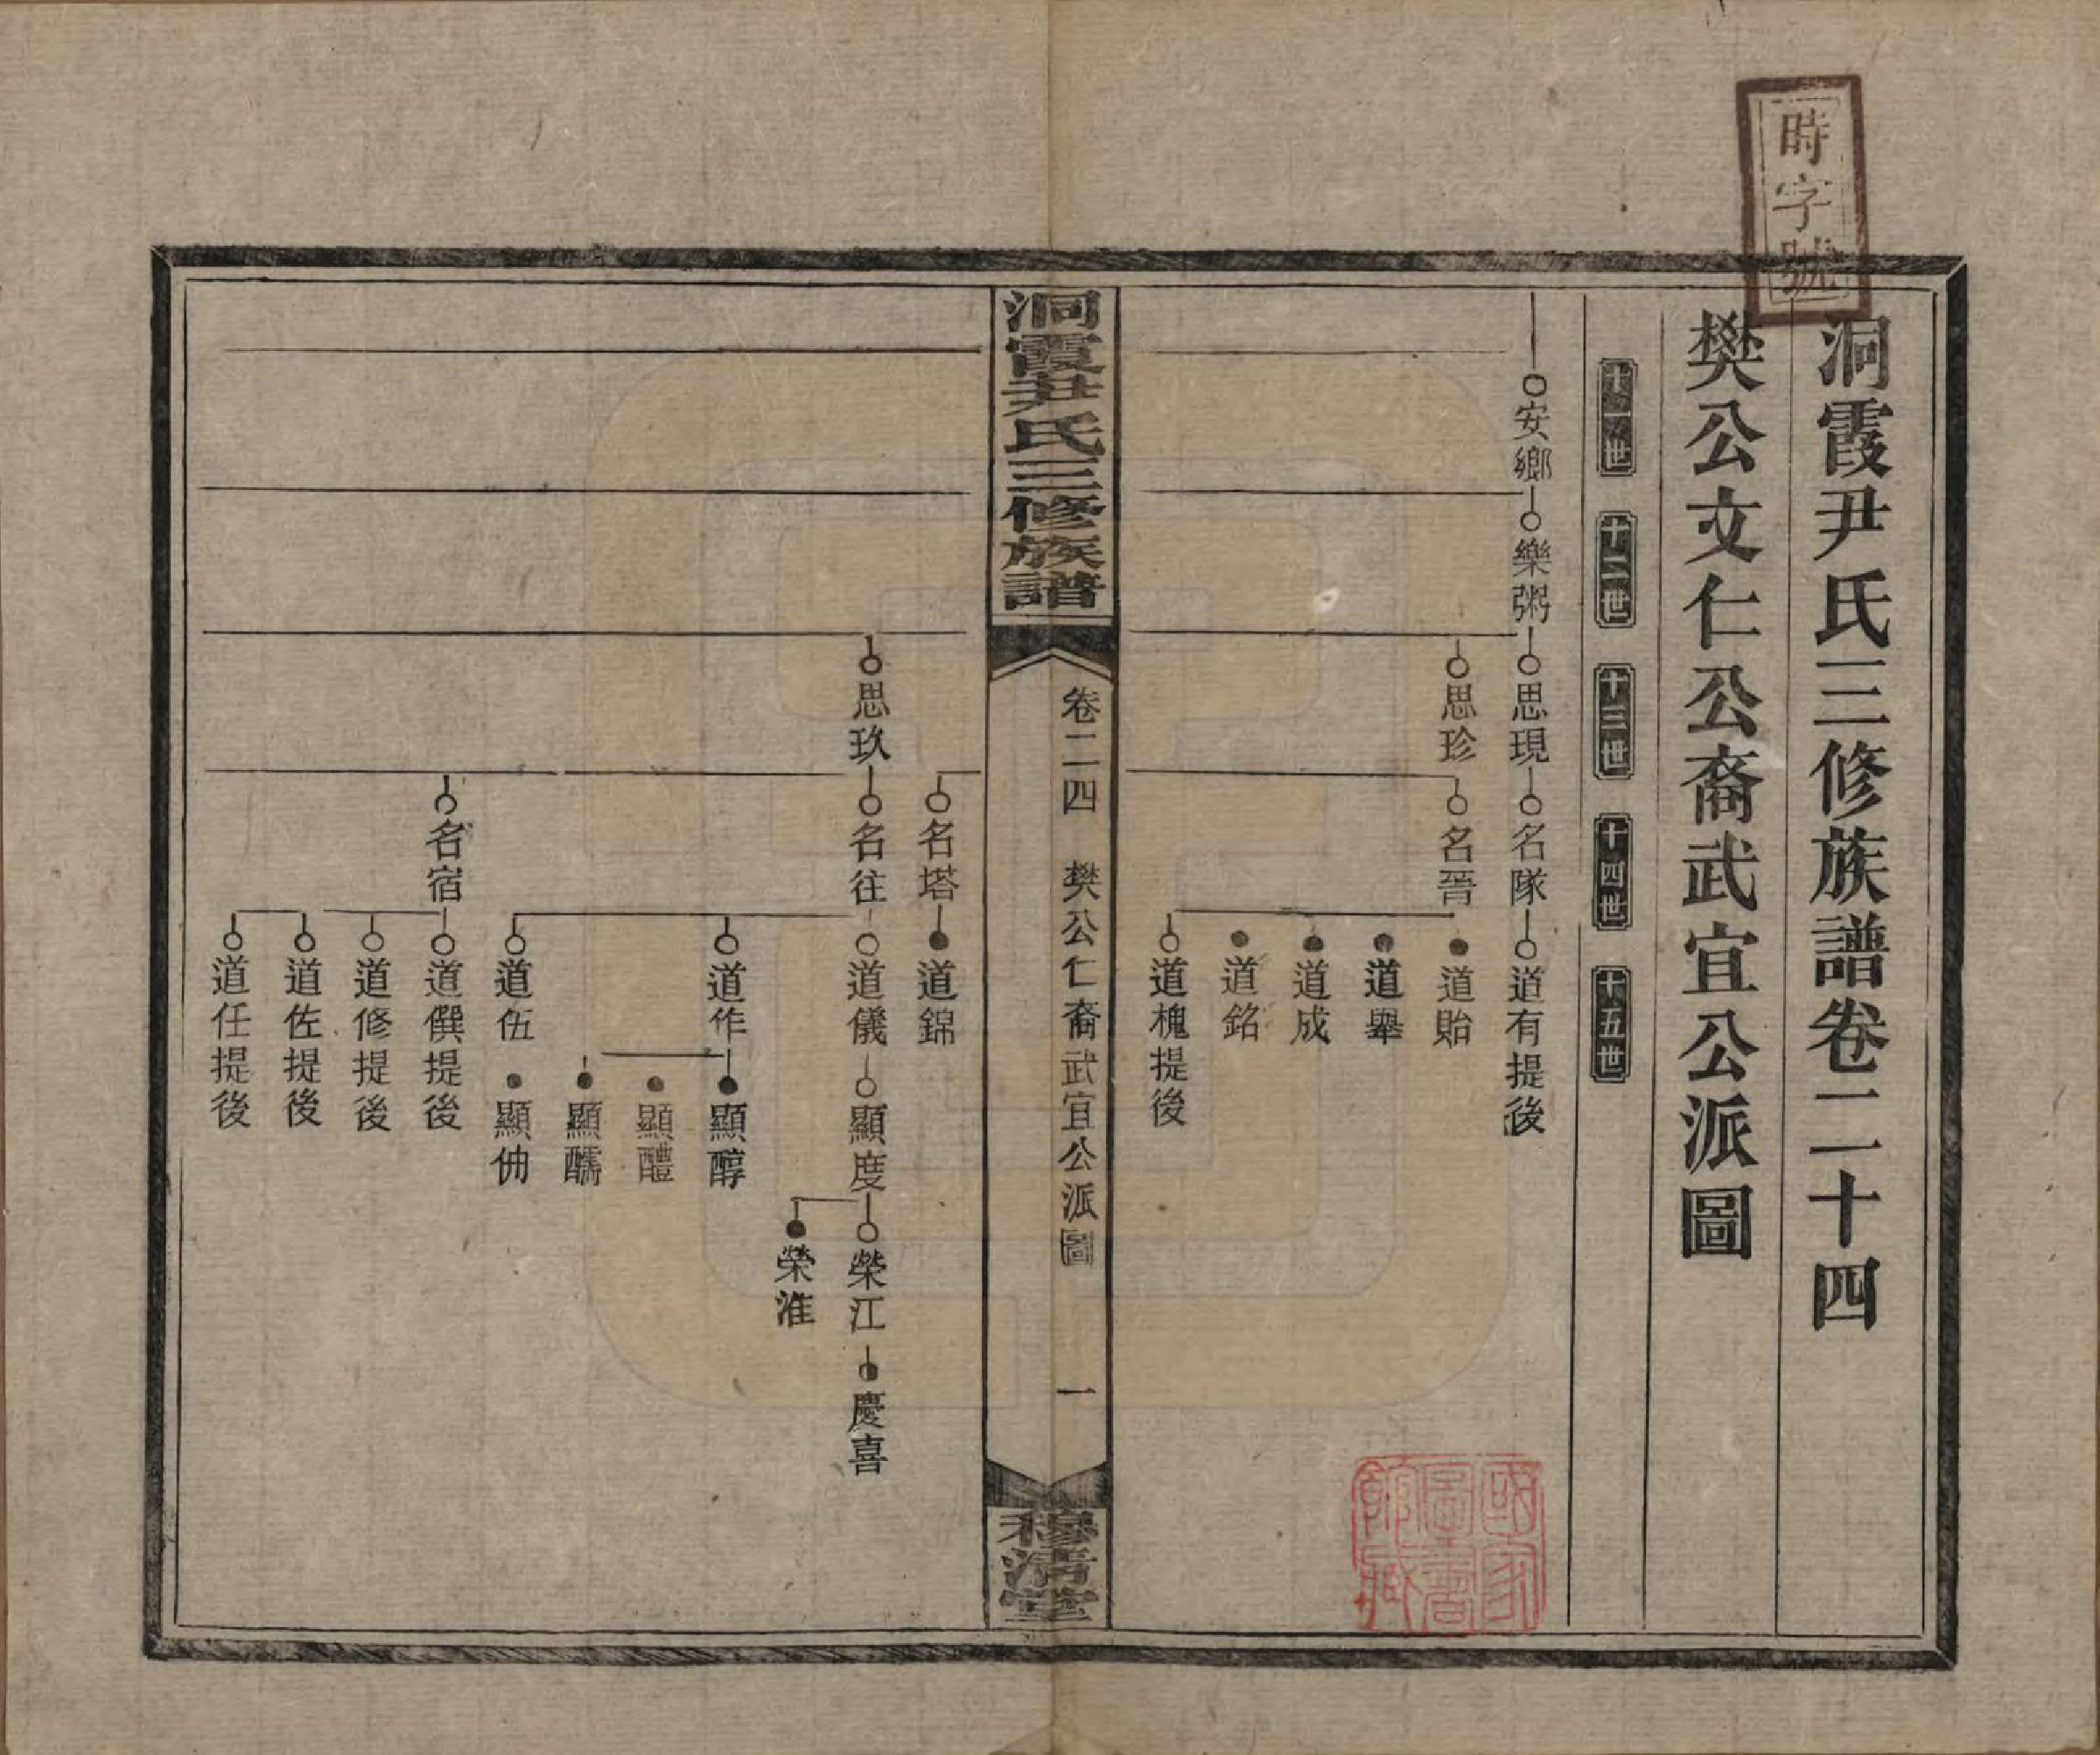 時字號
洞霞尹氏三修族譜卷二十四
樊公文仁公裔武宜公派圖
十一世 十二世 十三世 十四世 十五世
安鄉 樂粥 思現 名隊 道有提後
思珍 名晉 道貽
道舉
道成
道銘
道槐提後
洞霞尹氏三修族譜
卷二四 樊公仁裔武宜公派圖 一
穆清堂
名塔 道錦
思玖 名往 道儀 顯度 榮江 慶喜
榮淮
道作 顯醇
顯醴
顯醹
道伍 顯伷
名宿 道僎提後
道修提後
道佐提後
道任提後
國家圖書館藏